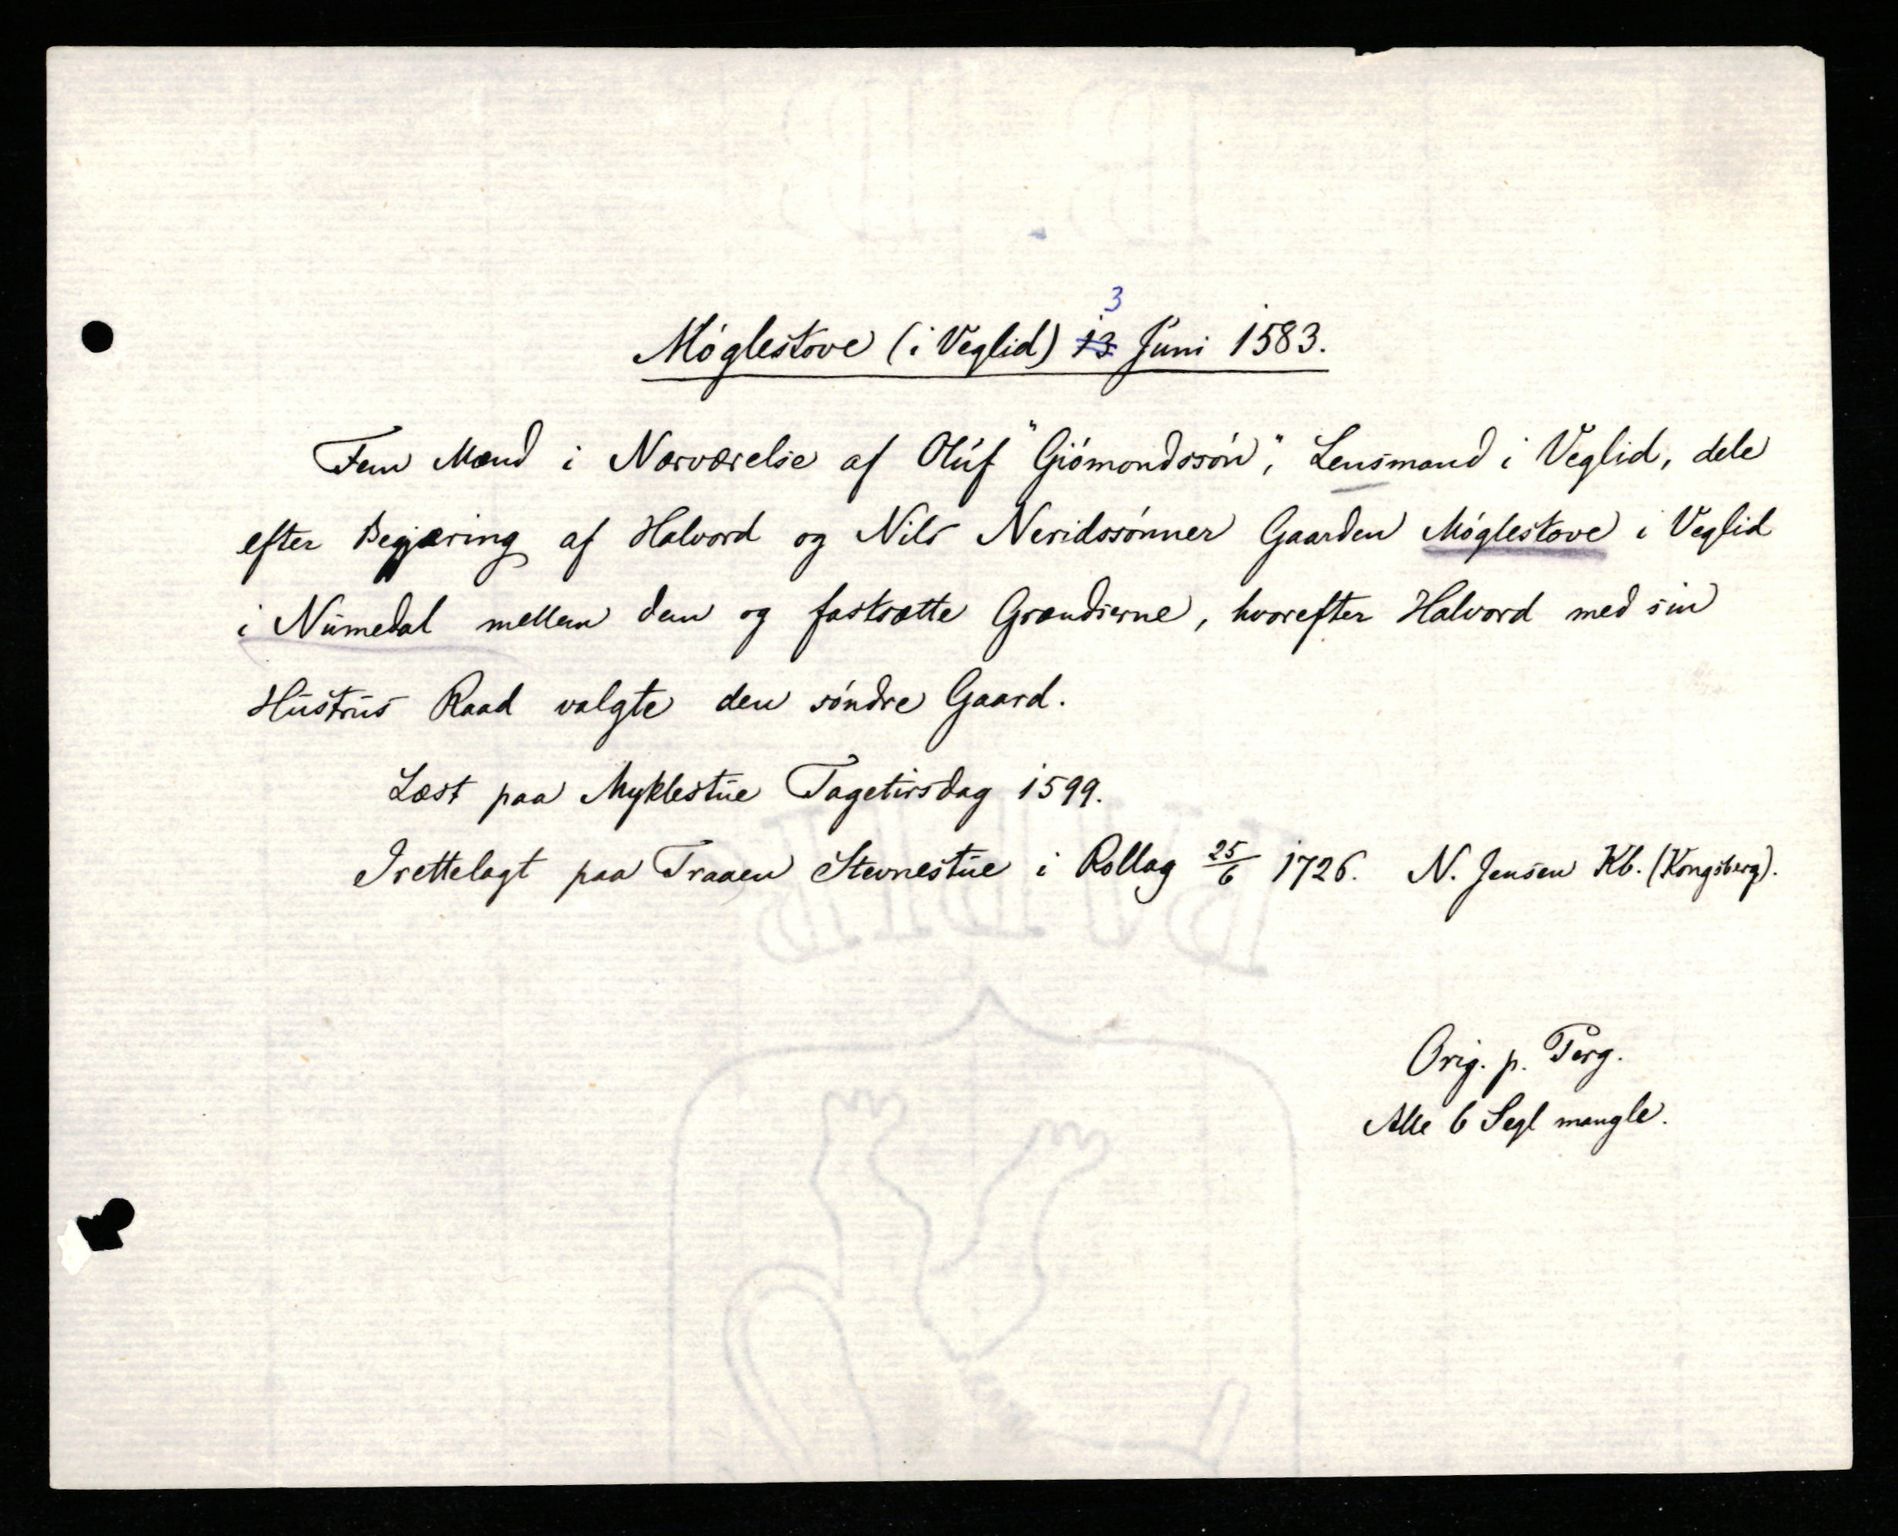 Møglestove (i Veglid) 13 3 Juni 1583.
Fem Mænd i Nærværelse af Oluf "Giömondssøn", Lensmand i Veglid, dele
efter Begjæring af Halvord og Nils Neridssønner Gaarden Møglestove i Veglid
i Numedal mellem dem og fastsætte Grændserne, hvorefter Halvord med sin
Hustrus Raad valgte den søndre Gaard.
Læst paa Myklestue Tagetirsdag 1599.
Irettelagt paa Traaen Stevnestue i Rollag 25/6 1726. N. Jensen Kb. (Kongsberg).
Orig. p. Perg.
Alle 6 Segl mangle.